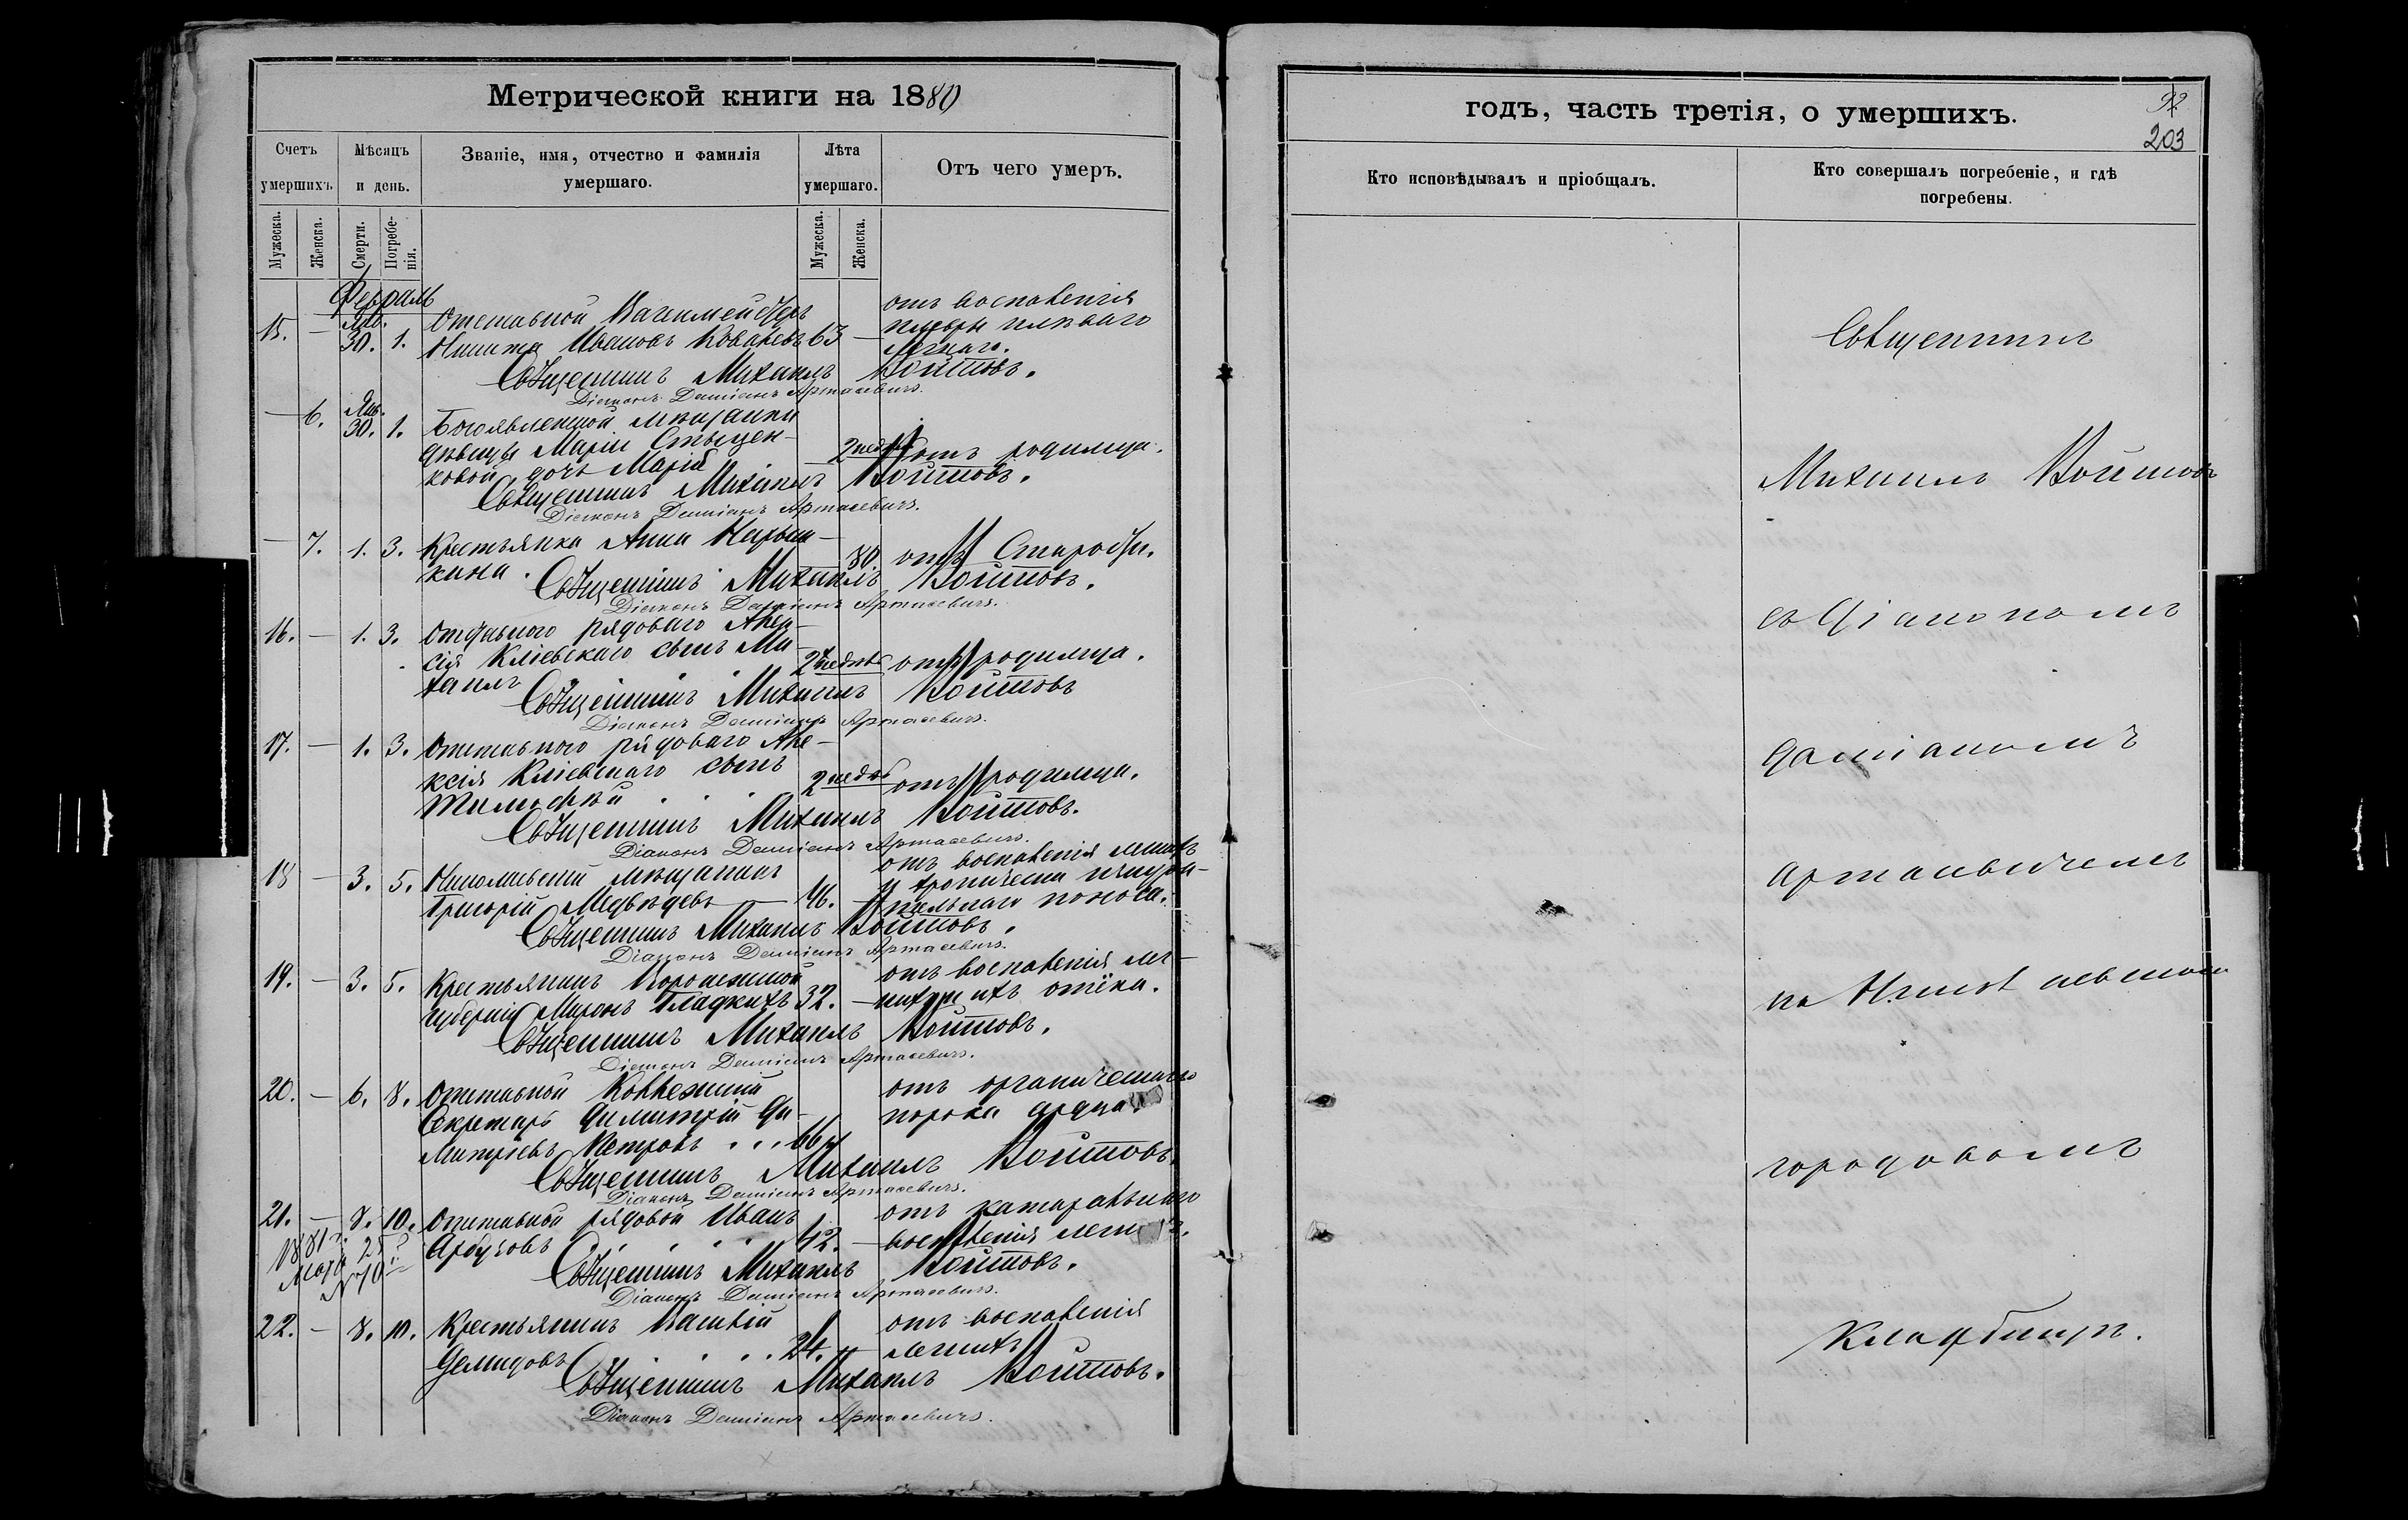 Метрической книги на 1880
Счетъ умершихъ.
Мѣсяцъ и день.
Званіе, имя, отчество и фамилія умершаго.
Лѣта умершаго.
Отъ чего умеръ.
Мужеска.
Женска.
Смерти.
Погребе-
нія.
Мужеска.
Женска.
Февраль
15. — Янв. 30. 1. Отставной Вахмейстръ
Никита Ивановъ Ковалевъ 63 —
отъ воспаленія
плевры и лѣваго
легкаго.
Священникъ Михаилъ Войтовъ.
Діаконъ Даміанъ Артасевичъ.
— 6. Янв. 30. 1. Богоявленской мѣщанки
дѣвицы Маріи Стыцен-
ковой дочь Марія — 2 недѣль отъ родимца.
Священникъ Михаилъ Войтовъ.
Діаконъ Даміанъ Артасевичъ.
— 7. 1. 3. Крестьянка Анна
кина. 80. отъ Старости.
Священникъ Михаилъ Войтовъ.
Діаконъ Даміанъ Артасевичъ.
16. — 1. 3. Отставного рядоваго Алек-
сія Кліевскаго сынъ Ми-
хаилъ 2 недѣль отъ родимца.
Священникъ Михаилъ Войтовъ
Діаконъ Даміанъ Артасевичъ.
17. — 1. 3. Отставного рядоваго Але-
ксія Кліевскаго сынъ
Тимофей 2 недѣль отъ родимца.
Священникъ Михаилъ Войтовъ.
Діаконъ Даміанъ Артасевичъ.
18 — 3. 5. Николаевскій мѣщанинъ
Григорій Медвѣдевъ — 46.
отъ воспаленія легкихъ
и хронически изнури-
тельнаго поноса.
Священникъ Михаилъ Войтовъ.
Діаконъ Даміанъ Артасевичъ.
19. — 3. 5. Крестьянинъ Воронежской
губерніи Миронъ Гладкихъ 32. —
отъ воспаленія лег-
кихъ и ихъ отёка.
Священникъ Михаилъ Войтовъ.
Діаконъ Даміанъ Артасевичъ.
20. — 6. 8. Отставной Коллежскій
Секретарь Димитрій Ди-
митріевъ Петровъ . . . 66
отъ органическаго
порока сердца
Священникъ Михаилъ Войтовъ.
Діаконъ Даміанъ Артасевичъ.
21. — 8. 10. Отставной рядовой Иванъ
Арбузовъ . . . 42. —
отъ катаральнаго
воспаленія легкихъ.
1881 г.
Священникъ Михаилъ Войтовъ.
Діаконъ Даміанъ Артасевичъ.
22. — 8. 10. Крестьянинъ Василій
Демидовъ . . . 24. —
отъ воспаленія
легкихъ
Священникъ Михаилъ Войтовъ.
Діаконъ Даміанъ Артасевичъ.
годъ, часть третія, о умершихъ.
92
203
Кто исповѣдывалъ и пріобщалъ.
Кто совершалъ погребеніе, и гдѣ погребены.
Священникъ
Михаилъ Войтовъ
съ Діакономъ
Даміаномъ
Артасевичемъ
на Николаевскомъ
городовомъ
кладбищѣ.